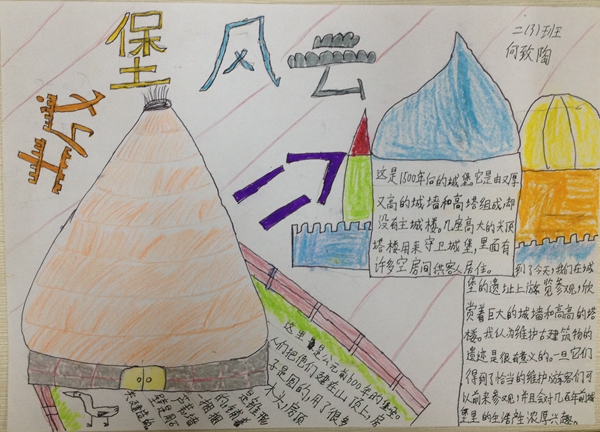 城堡风云
二(3)班
何致陶
这是1500年份的城堡。它是由又厚
又高的城墙和高塔组成，却
没有主城楼。几座高大的尖顶
塔楼用来守卫城堡，里面有
许多空房间供客人居住。
到了今天，我们在城
堡的遗址上游览参观，欣
赏着巨大的城墙和高高的塔
楼。我认为维护古建筑物的
遗迹是很有意义的。一旦它们
得到了恰当的维护，游客们可
以前来参观，并且会对几百年前城
堡里的生活产生浓厚兴趣。
这里是公元前1000年的堡垒。
人们把他们建在山顶上，房
子是圆的，用了很多
木头，房顶
是锥形
的，铺着
捆捆
芦苇，墙
壁是用石
头建造的。